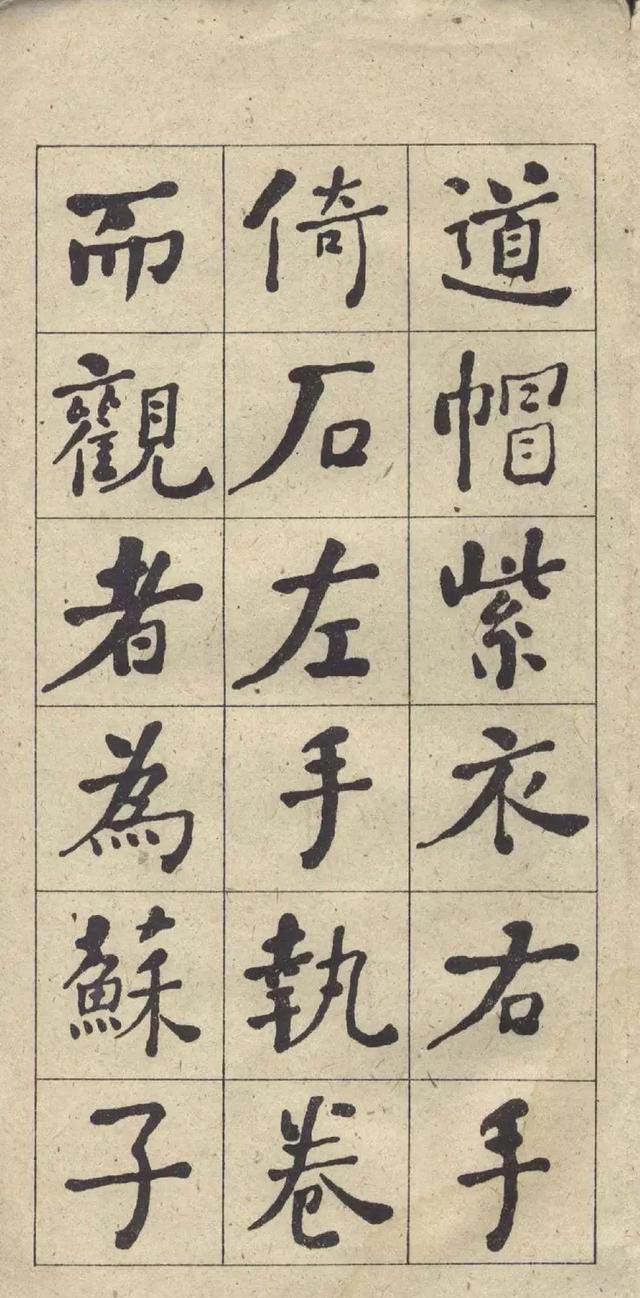 道帽紫衣右手
倚石左手執卷
而觀者為蘇子